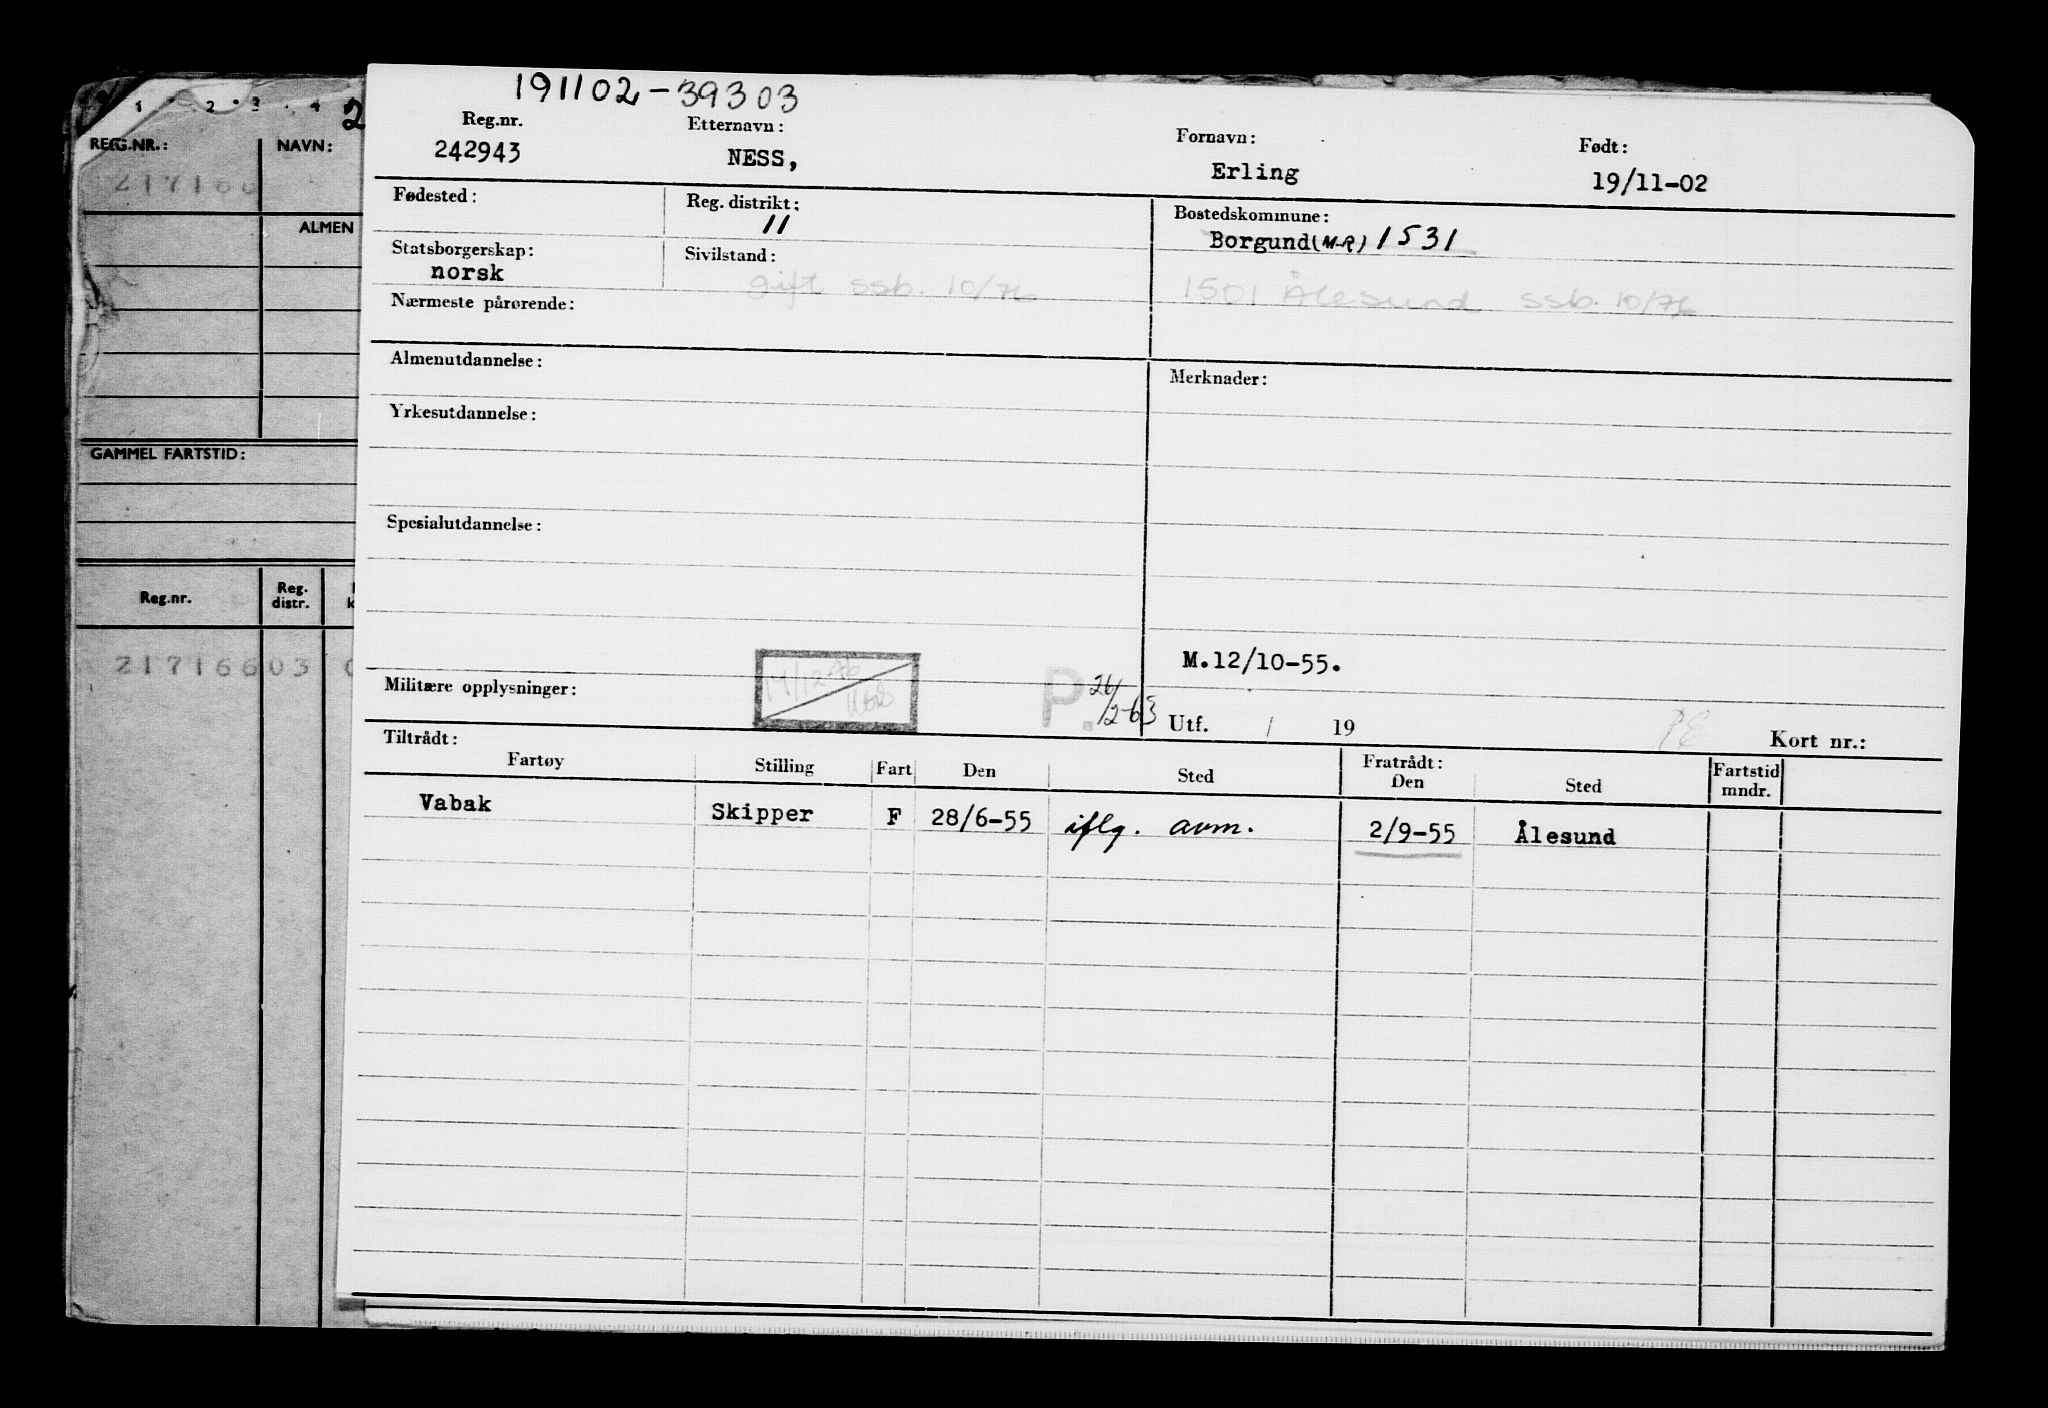 191102-39303
Reg.nr. Etternavn: Fornavn: Født:
242943 NESS, Erling 19/11-02
Fødested: Reg. distrikt: Bostedskommune:
11 Borgund (M-R) 1531
Statsborgerskap: Sivilstand:
norsk gift ssb. 10/76 1501 Ålesund ssb. 10/76
Nærmeste pårørende:
Almenutdannelse: Merknader:
Yrkesutdannelse:
Spesialutdannelse:
M.12/10-55.
Militære opplysninger: 14/12-76 P. 26/2-63
Utf. / 19 Kort nr.:
Tiltrådt: Fratrådt:
Fartøy Stilling Fart Den Sted Den Sted Fartstid mndr.
Vabak Skipper F 28/6-55 iflg. avm. 2/9-55 Ålesund
1 2 3 4 2
REG.NR.: NAVN:
217166
ALMEN
GAMMEL FARTSTID:
Reg.nr. Reg. distr.
21716603